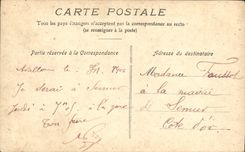 CARTE POSTALE
Tous les pays étrangers n'acceptent pas la correspondance au recto
(se renseigner à la poste)
Partie réservée à la Correspondance
Adresse du destinataire
Avallon le
Je serai à Semur
Jeudi à 7h 1/2 à la gare
Ton frère
Madame
à la mairie
de Semur
Côte d'or